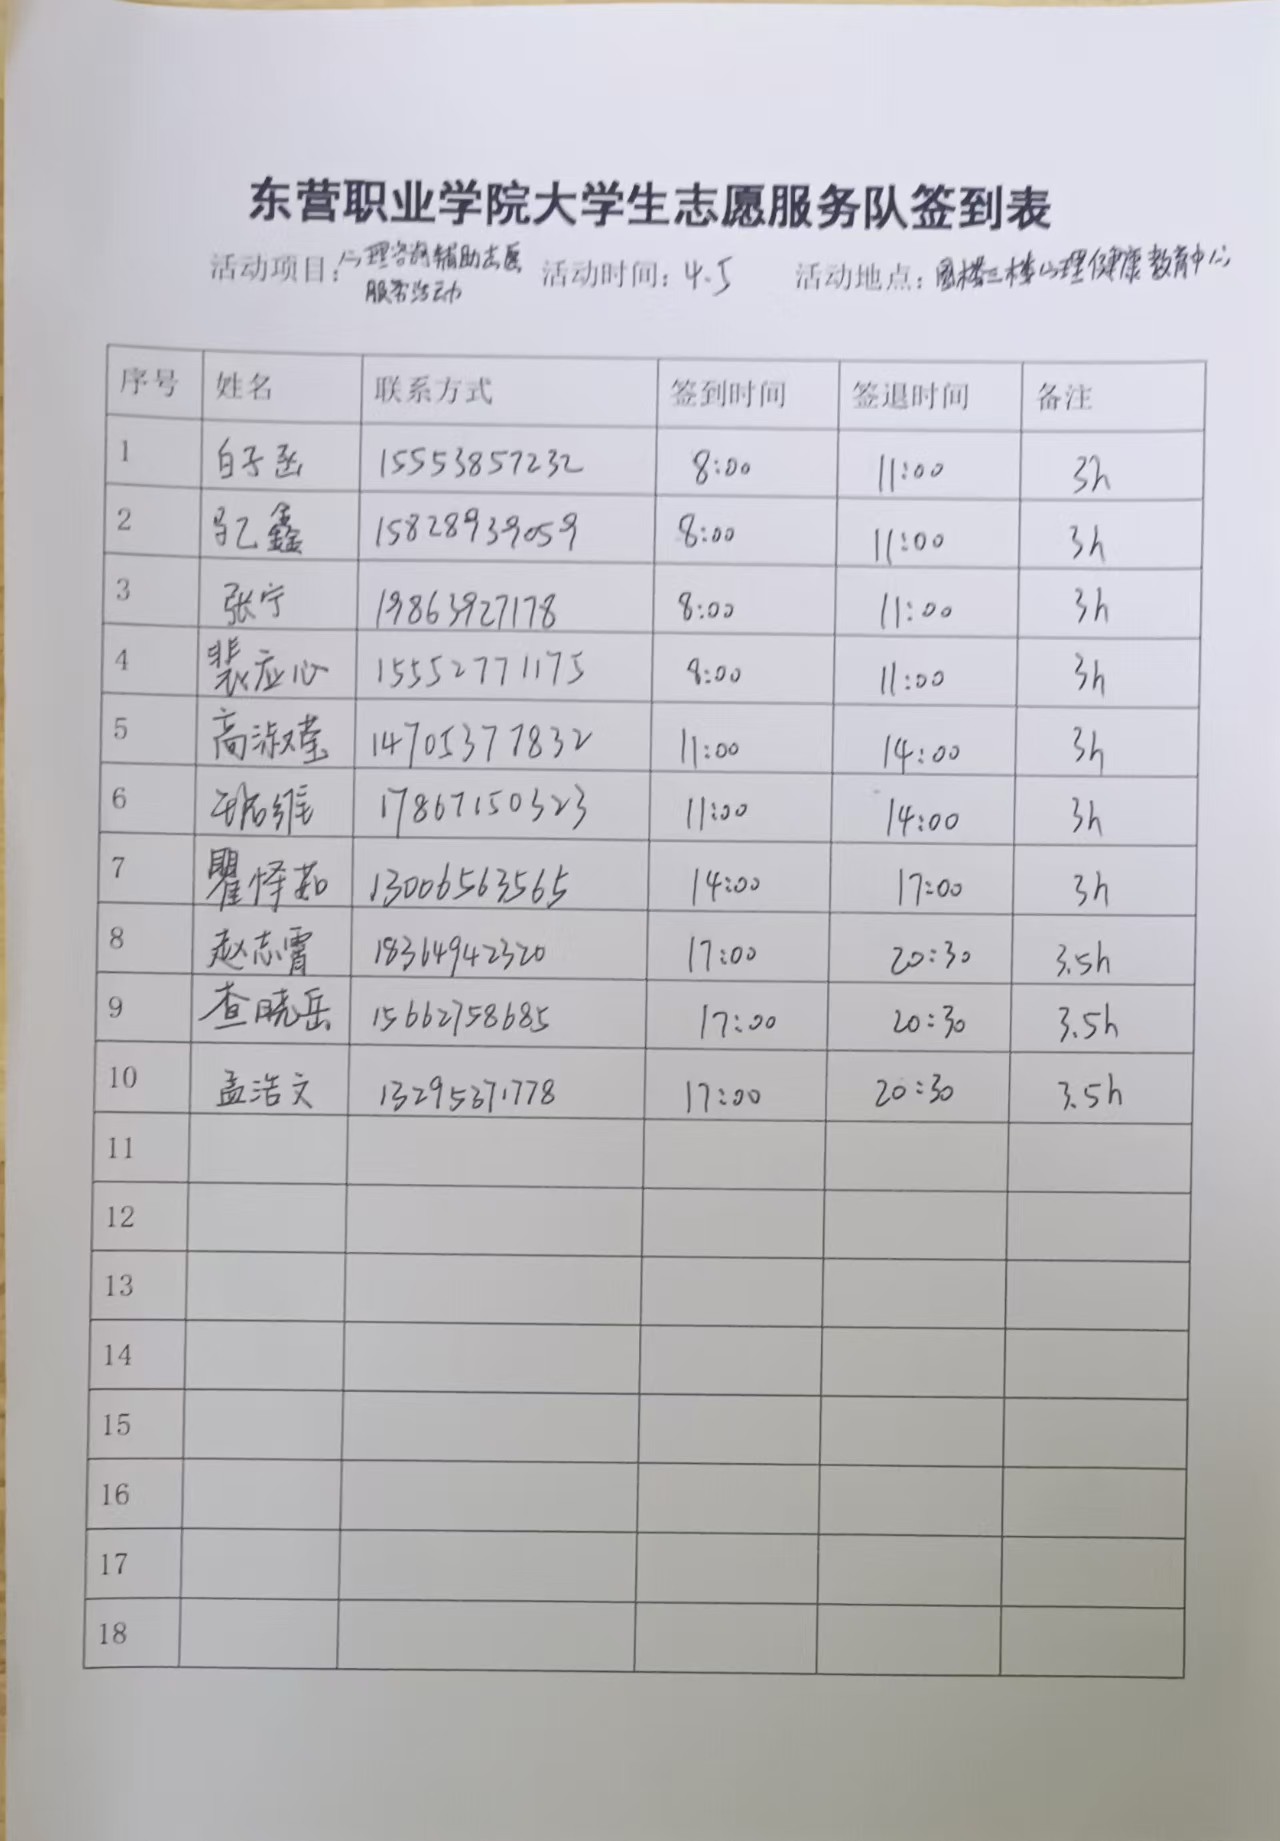 东营职业学院大学生志愿服务队签到表
活动项目：心理咨询辅助志愿 活动时间：4.5 活动地点：图楼三楼心理健康教育中心
服务活动
序号 姓名 联系方式 签到时间 签退时间 备注
1 白子函 15553857232 8:00 11:00 3h
2 马乙鑫 15828939059 8:00 11:00 3h
3 张宁 19863927178 8:00 11:00 3h
4 裴应心 15552771175 8:00 11:00 3h
5 高淑莹 14705377832 11:00 14:00 3h
6 17867150323 11:00 14:00 3h
7 瞿怿茹 13006563565 14:00 17:00 3h
8 赵志霄 18364942320 17:00 20:30 3.5h
9 查晓岳 15662758685 17:00 20:30 3.5h
10 孟浩文 13295371778 17:00 20:30 3.5h
11
12
13
14
15
16
17
18